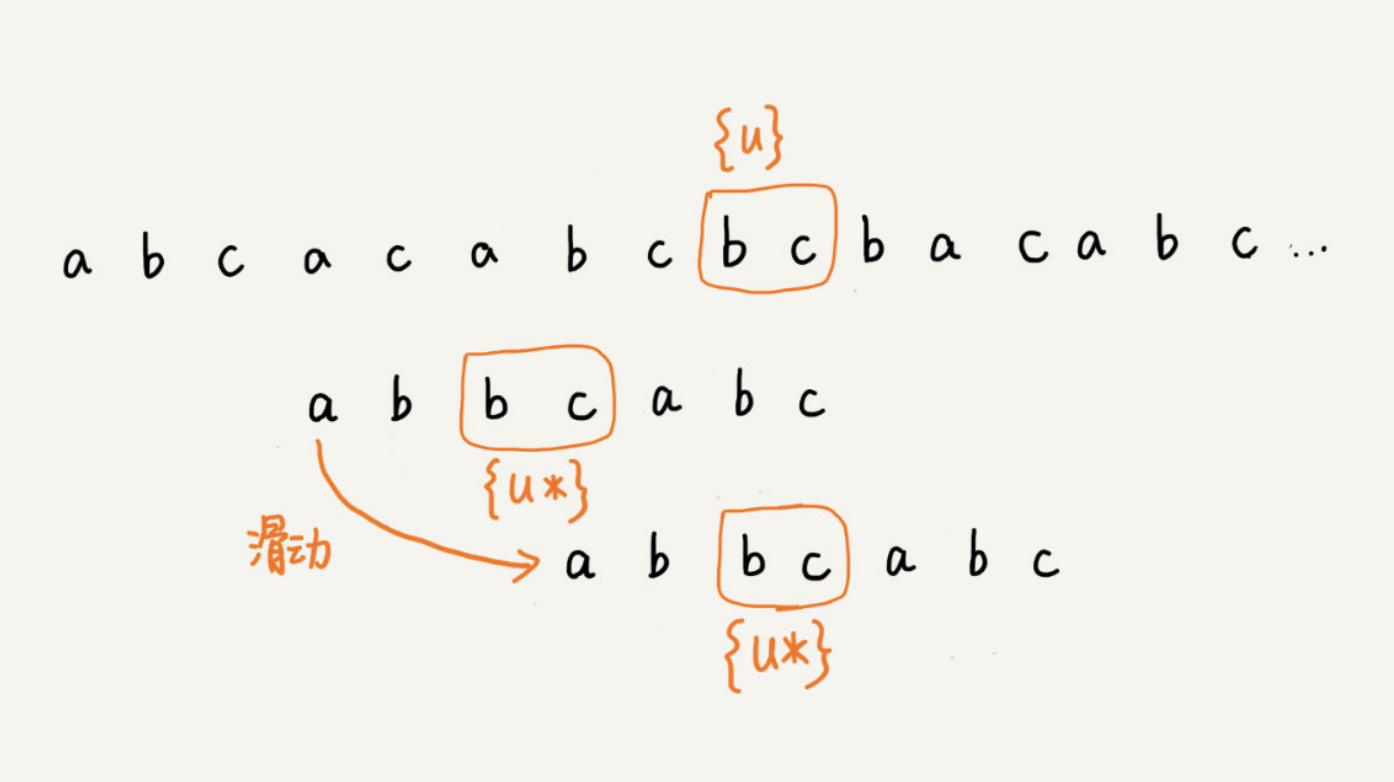 {u}
a b c a c a b c b c b a c a b c ...
a b b c a b c
{u*}
滑动
a b b c a b c
{u*}